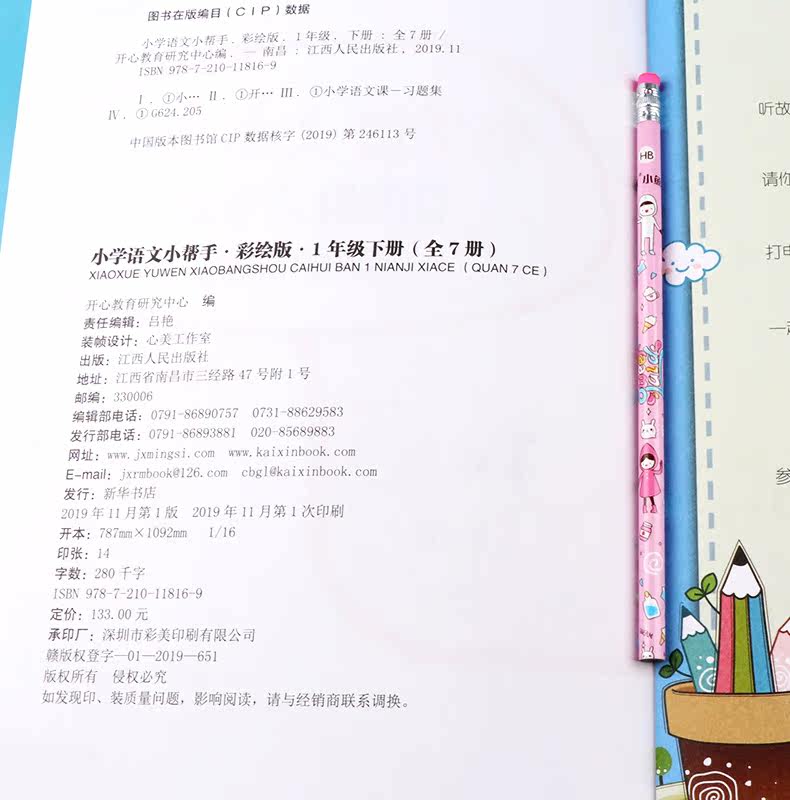 图书在版编目(CIP)数据
小学语文小帮手.彩绘版.1年级.下册:全7册/
开心教育研究中心编.—南昌:江西人民出版社,2019.11
ISBN 978-7-210-11816-9
Ⅰ.①小… Ⅱ.①开… Ⅲ.①小学语文课—习题集
Ⅳ.①G624.205
中国版本图书馆CIP数据核字(2019)第246113号
小学语文小帮手·彩绘版·1年级下册(全7册)
XIAOXUE YUWEN XIAOBANGSHOU CAIHUI BAN 1 NIANJI XIACE (QUAN 7 CE)
开心教育研究中心 编
责任编辑:吕艳
装帧设计:心美工作室
出版:江西人民出版社
地址:江西省南昌市三经路47号附1号
邮编:330006
编辑部电话:0791-86890757 0731-88629583
发行部电话:0791-86893881 020-85689883
网址:www.jxmingsi.com www.kaixinbook.com
E-mail:jxrmbook@126.com cbgl@kaixinbook.com
发行:新华书店
2019年11月第1版 2019年11月第1次印刷
开本:787mm×1092mm 1/16
印张:14
字数:280千字
ISBN 978-7-210-11816-9
定价:133.00元
承印厂:深圳市彩美印刷有限公司
赣版权登字—01—2019—651
版权所有 侵权必究
如发现印、装质量问题,影响阅读,请与经销商联系调换。
HB
听故
请你
打电
参